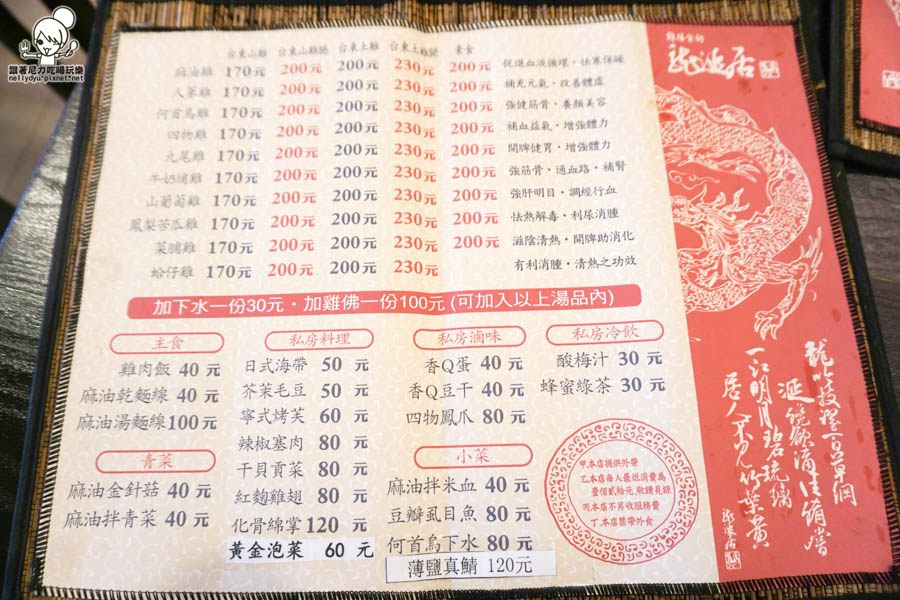 跟著尼力吃喝玩樂
nellydyu.pixnet.net
台東山雞 台東山雞腿 台東土雞 台東土雞腿 素食
麻油雞 170元 200元 200元 230元 200元 促進血液循環·怯寒保暖
人蔘雞 170元 200元 200元 230元 200元 補充元氣·改善體虛
何首烏雞 170元 200元 200元 230元 200元 強健筋骨·養顏美容
四物雞 170元 200元 200元 230元 200元 補血益氣·增強體力
九尾雞 170元 200元 200元 230元 200元 開脾健胃·增強體力
牛奶埔雞 170元 200元 200元 230元 200元 強筋骨·通血路·補腎
山葡萄雞 170元 200元 200元 230元 200元 強肝明目·調經行血
鳳梨苦瓜雞 170元 200元 200元 230元 200元 怯熱解毒·利尿消腫
菜脯雞 170元 200元 200元 230元 200元 滋陰清熱·開脾助消化
蛤仔雞 170元 200元 200元 230元 有利消腫·清熱之功效
加下水一份30元·加雞佛一份100元(可加入以上湯品內)
主食
雞肉飯 40元
麻油乾麵線 40元
麻油湯麵線 100元
青菜
麻油金針菇 40元
麻油拌青菜 40元
私房料理
日式海帶 50元
芥茉毛豆 50元
寧式烤芙 60元
辣椒塞肉 80元
干貝貢菜 80元
紅麴雞翅 80元
化骨綿掌 120元
黃金泡菜 60元
私房滷味
香Q蛋 40元
香Q豆干 40元
四物鳳爪 80元
小菜
麻油拌米血 40元
豆瓣虱目魚 80元
何首烏下水 80元
薄鹽真鯖 120元
私房冷飲
酸梅汁 30元
蜂蜜綠茶 30元
甲本店提供外帶
乙本店每人最低消費為
壹佰貳拾元,敬請見諒
丙本店不另收服務費
丁本店禁帶外食
龍涎居